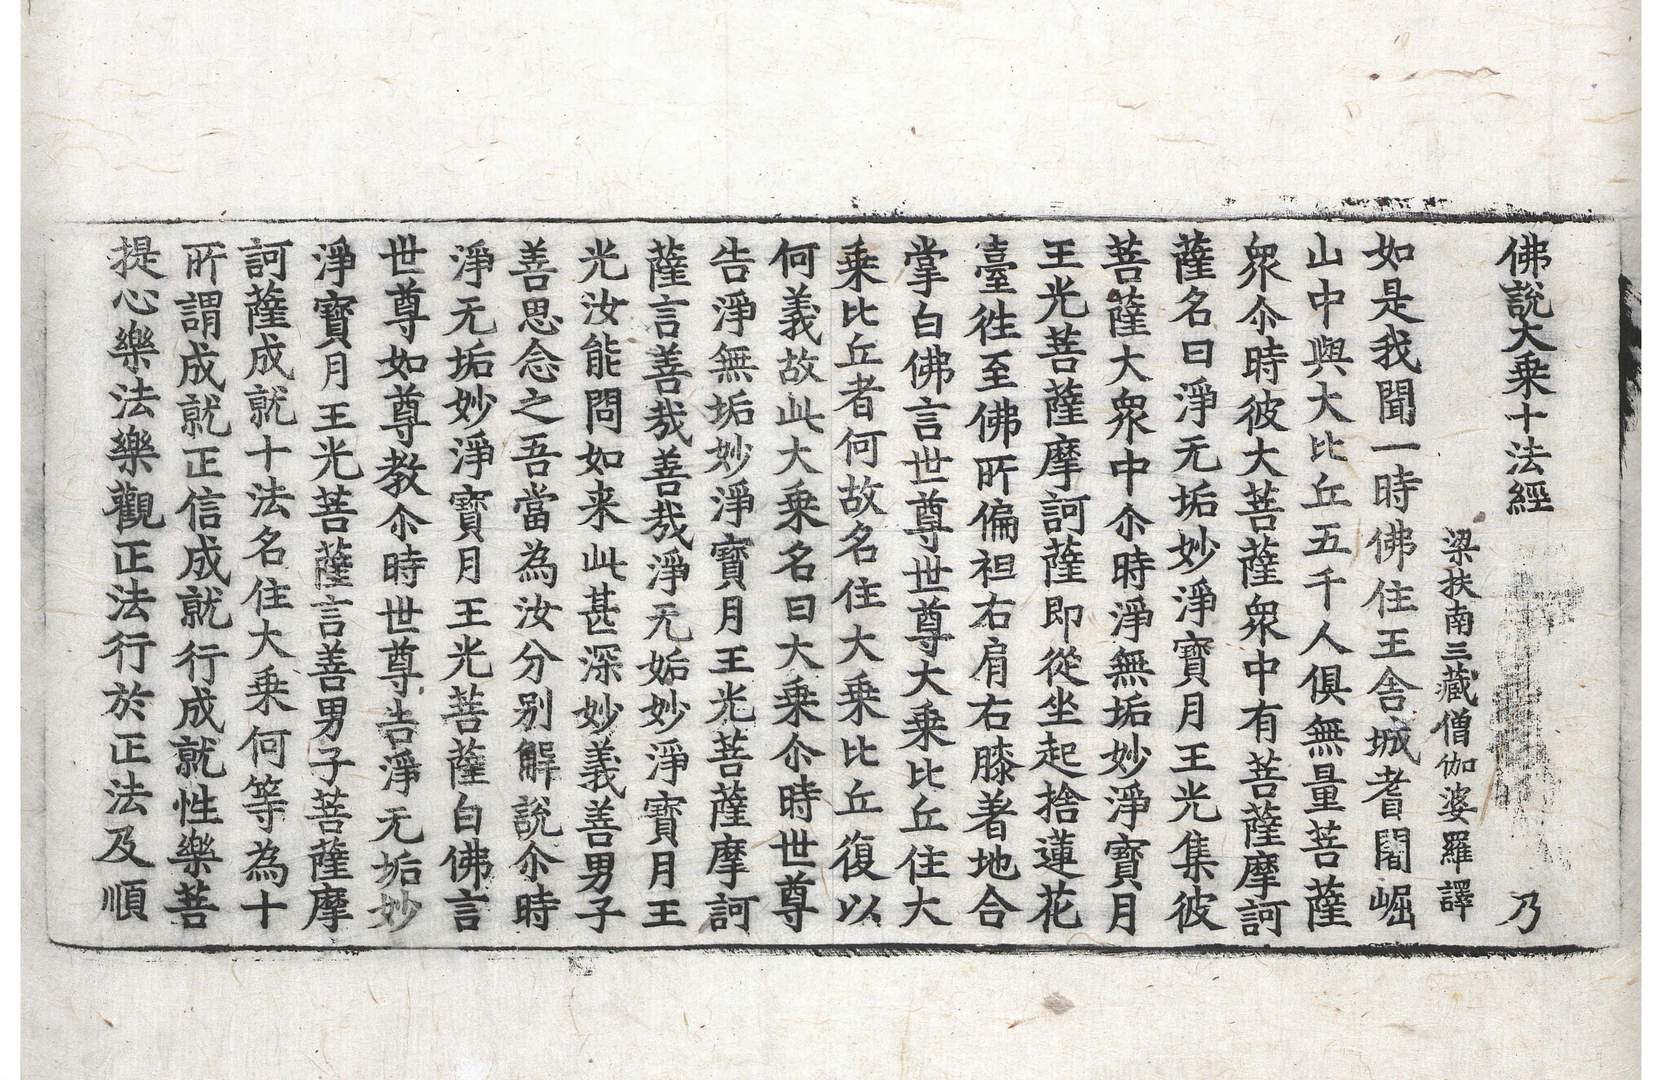 佛說大乘十法經　乃
梁扶南三藏僧伽婆羅譯
如是我聞一時佛住王舍城耆闍崛
山中與大比丘五千人俱無量菩薩
衆尒時彼大菩薩衆中有菩薩摩訶
薩名曰淨无垢妙淨寶月王光集彼
菩薩大衆中尒時淨無垢妙淨寶月
王光菩薩摩訶薩即從坐起捨蓮花
臺徃至佛所偏袒右肩右膝著地合
掌白佛言世尊世尊大乘比丘住大
乘比丘者何故名住大乘比丘復以
何義故此大乘名曰大乘尒時世尊
告淨無垢妙淨寶月王光菩薩摩訶
薩言善哉善哉淨无垢妙淨寶月王
光汝能問如来此甚深妙義善男子
善思念之吾當為汝分别解說尒時
淨无垢妙淨寶月王光菩薩白佛言
世尊如尊教尒時世尊告淨无垢妙
淨寶月王光菩薩言善男子菩薩摩
訶薩成就十法名住大乘何等為十
所謂成就正信成就行成就性樂菩
提心樂法樂觀正法行於正法及順